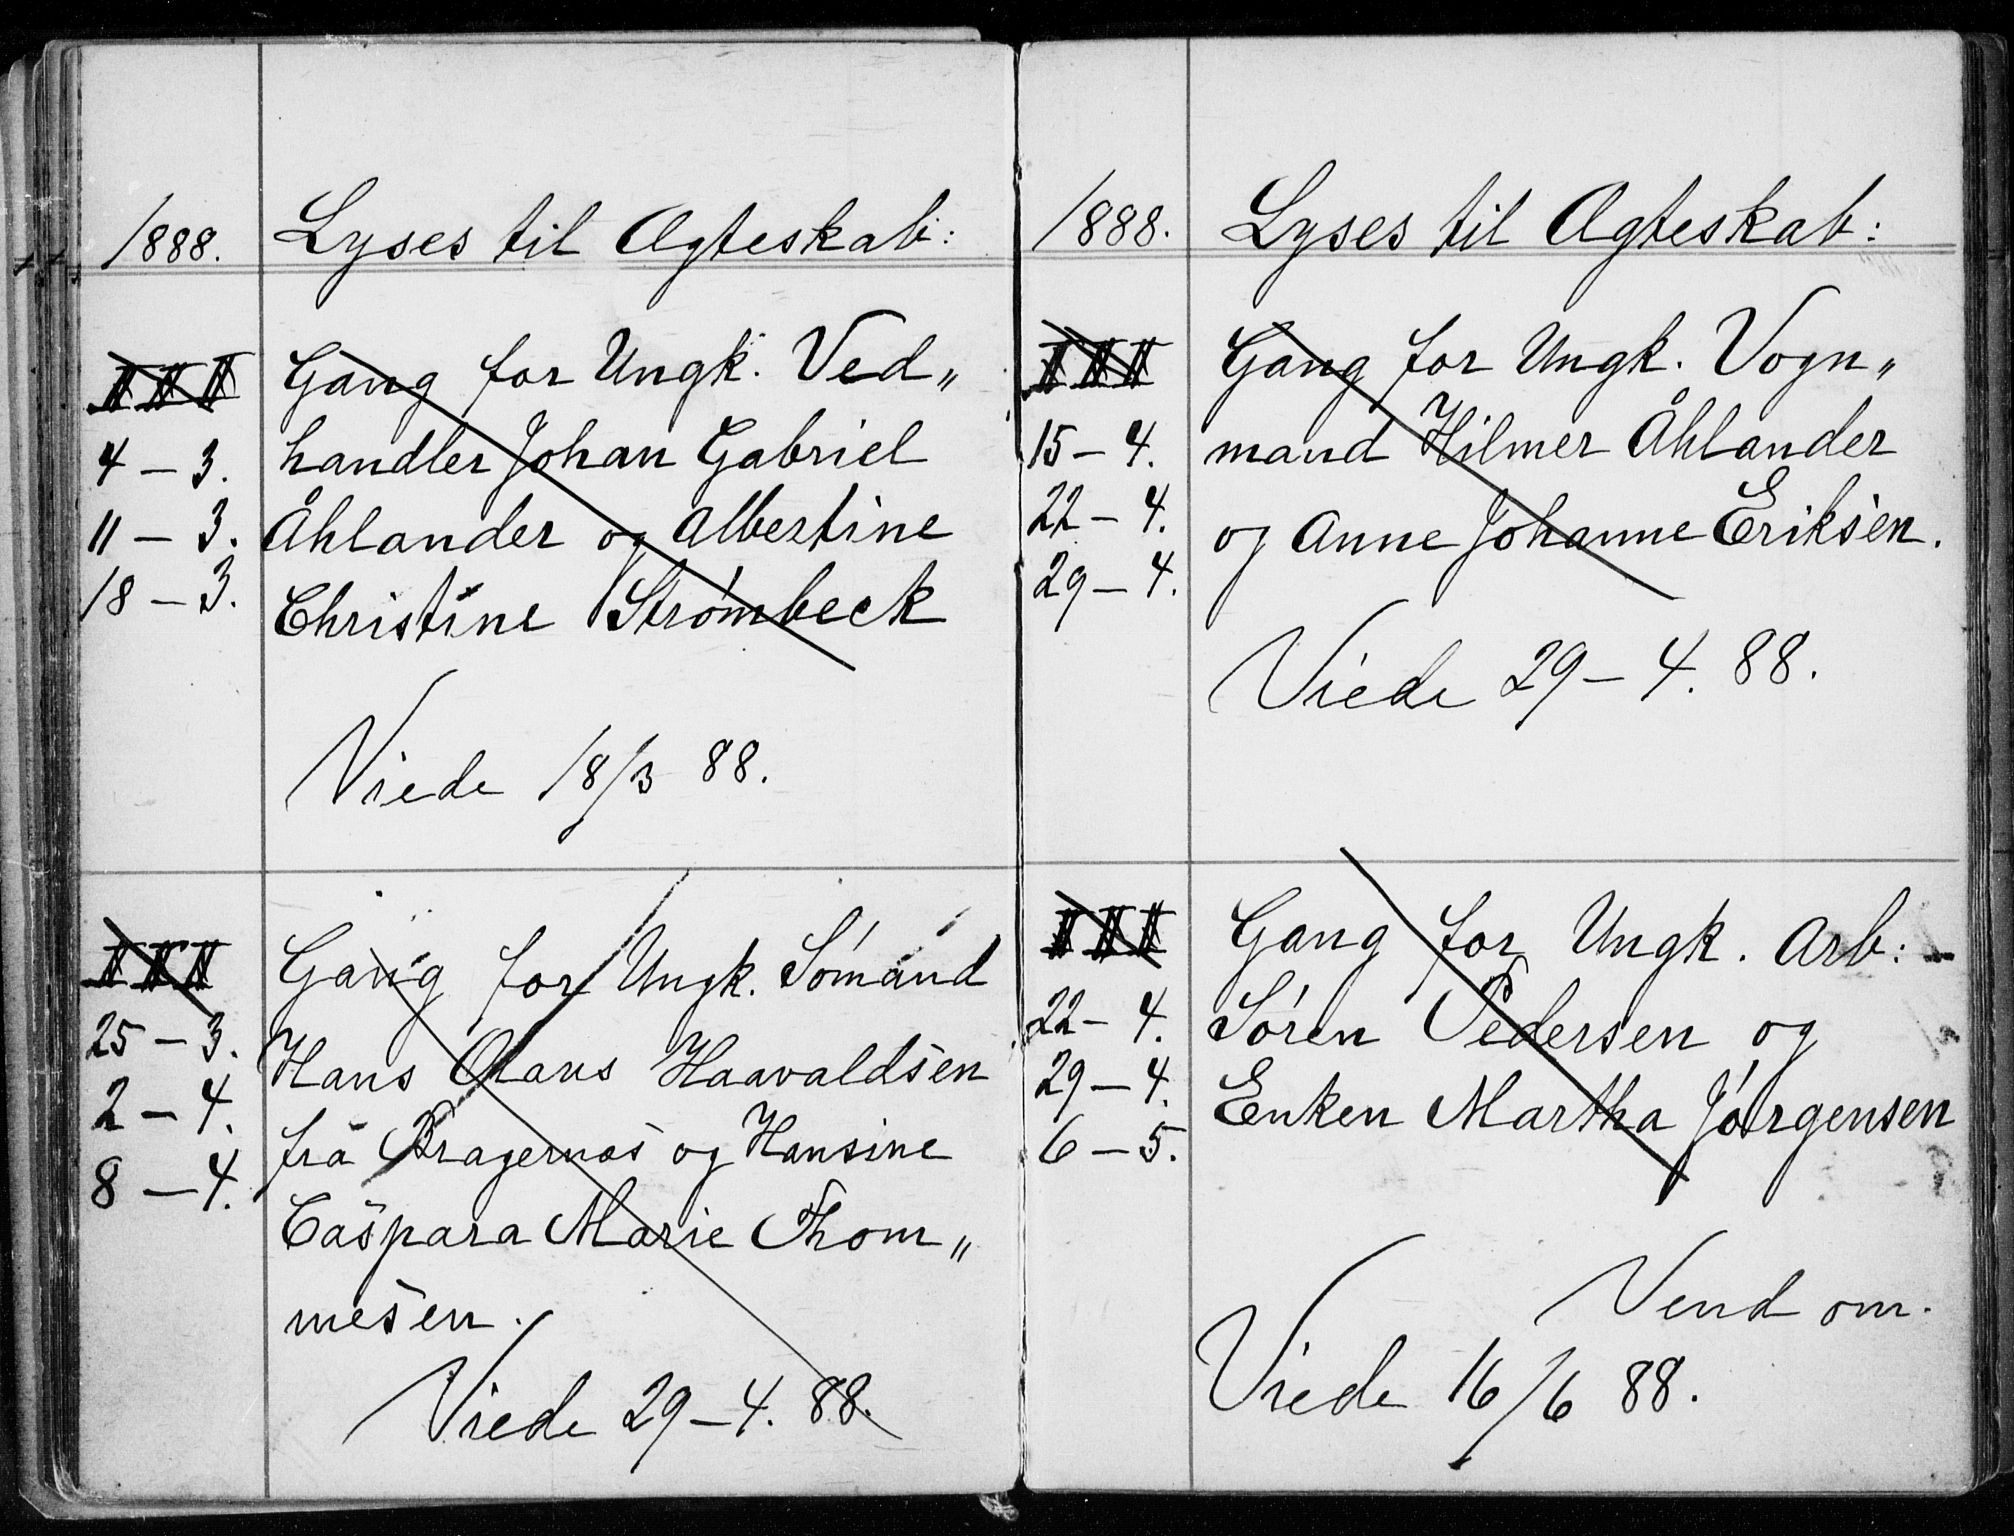 1888. Lyses til Ægteskab:
I II III Gang for Ungk. Ved„
4 – 3. handler Johan Gabriel
11 – 3. Åhlander og Albertine
18 – 3. Christine Strømbeck
Viede 18/3 88.
I II III Gang for Ungk. Sømand
25 – 3. Hans Olaus Haavaldsen
2 – 4. fra Bragernæs og Hansine
8 – 4. Caspara Marie Thom„
mesen.
Viede 29 – 4. 88.
1888. Lyses til Ægteskab:
I II III Gang for Ungk. Vogn„
15 – 4. mand Hilmer Åhlander
22 – 4. og Anne Johanne Eriksen.
29 – 4.
Viede 29 – 4. 88.
I II III Gang for Ungk. Arb:
22 – 4. Søren Pedersen og
29 – 4. Enken Martha Jørgensen
6 – 5.
Vend om.
Viede 16/6 88.